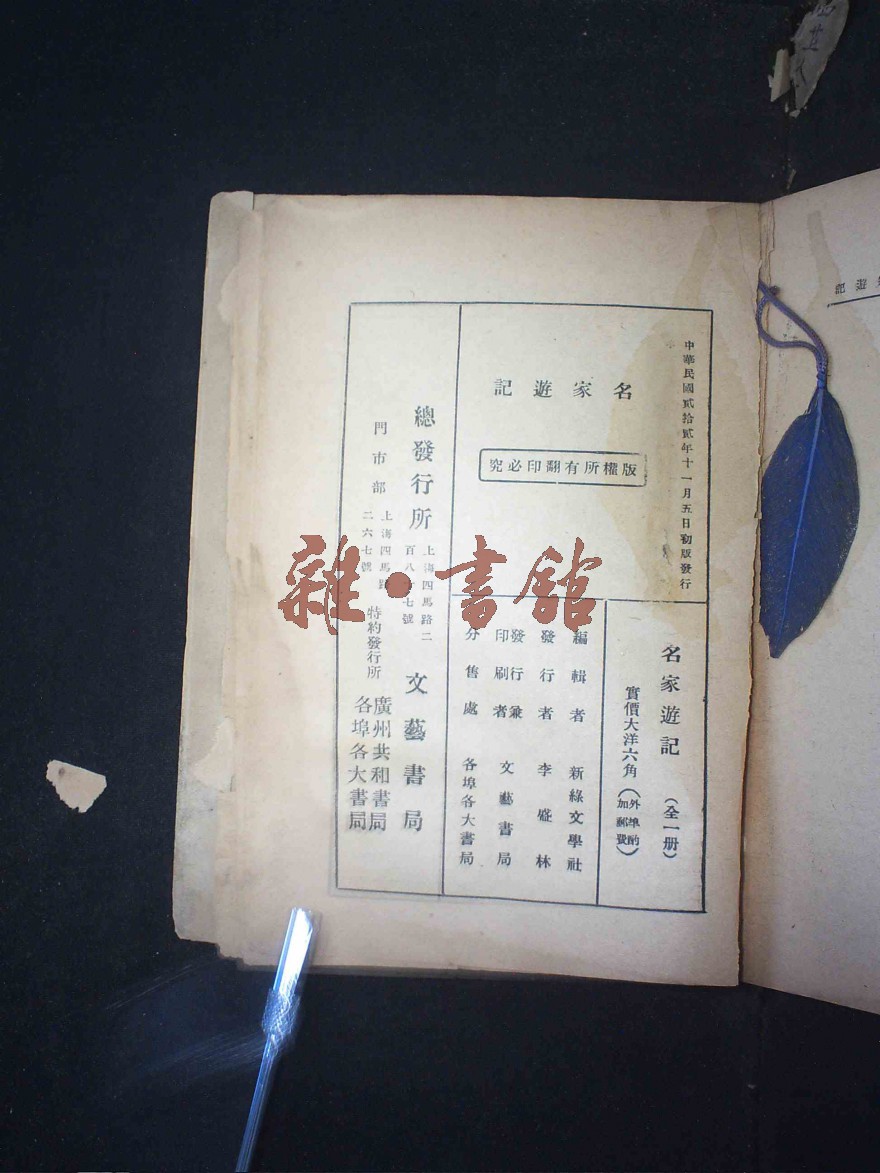 中華民國貳拾貳年十一月五日初版發行
名家遊記
版權所有翻印必究
名家遊記（全一册）
實價大洋六角
外埠酌
加郵費
編輯者 新綠文學社
發行者 李盛林
發行兼
印刷者 文藝書局
分售處 各埠各大書局
總發行所 上海四馬路二
百八十七號 文藝書局
門市部 上海四馬路
二六七號
特約發行所 廣州共和書局
各埠各大書局
遊記
雜·書館